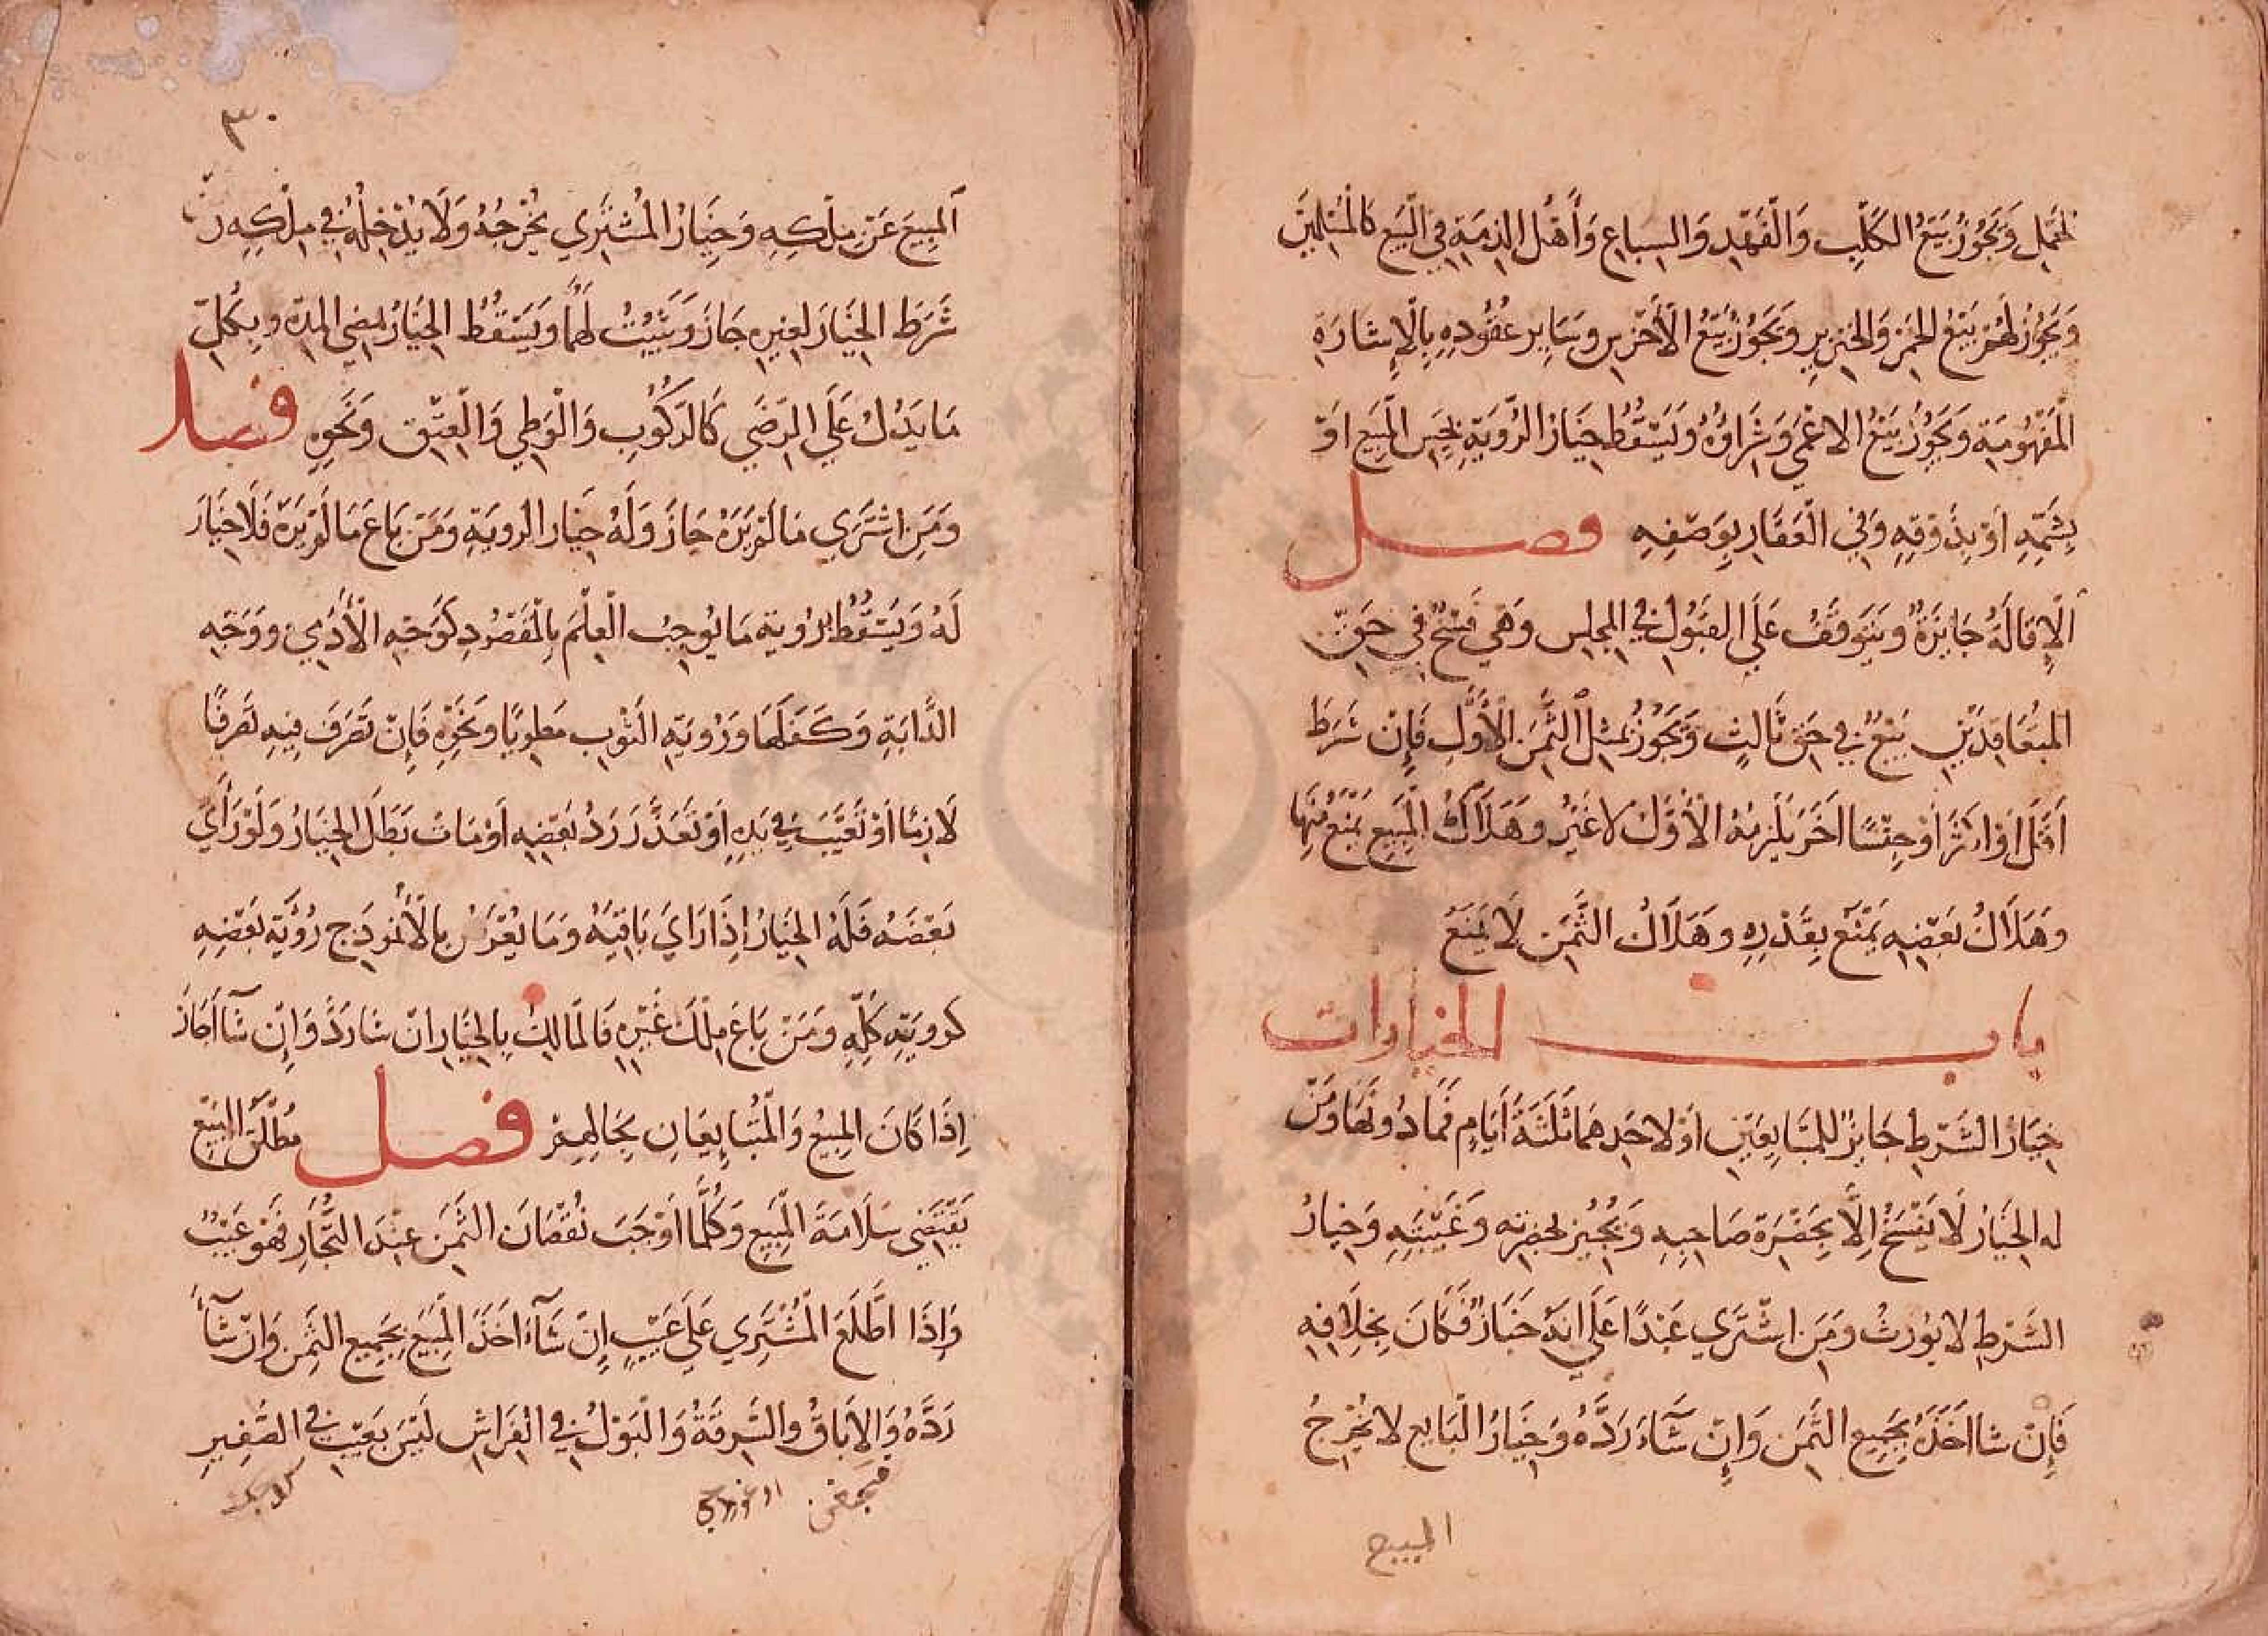 لحمل وَيَجُوزُ بَيْعُ الكَلْبِ وَالْفَهْدِ وَالسِبَاعِ وَأَهْلُ الذِمَةِ فِي الْبَيْعِ كَالْمُسْلِمِينَ
وَيَجُوزُ لَهُمْ بَيْعُ الخَمْرِ وَالخِنْزِيرِ وَيَجُوزُ بَيْعُ الْأَخْرَسِ وَسَايِرِ عُقُودِهِ بِالْإِشَارَةِ
الْمَفْهُومَةِ وَيَجُوزُ بَيْعُ الاعْمَي وَشِرَاؤُهُ وَيَسْقُطُ خِيَارُ الرُّوْيَةِ بِجَسِ الْمَبِيعِ اَوْ
بِشَمِّهِ اَوْ بِذَوْقِهِ وَفِي الْعَقَارِ بِوَصْفِهِ فصل
اَلْإِقَالَةُ جَايِزَةٌ وَيَتَوَقَفُ عَلَي القَبُولِ فِي المجلِسِ وَهِيَ فَسْخٌ فِي حَقِّ
المتُعَاقِدَيْنِ بَيْعٌ فِي حَقِ ثَالِثٍ وَيَجُوزُ بمثِلِ الثَّمَنِ الْأَوَّلِ فَإِنْ شَرَطَ
اَقَلَ اَوْ اكثَرَ اَوْ جِنْسًا اخَرَ يَلْزمُهُ الْأَوَّلُ لَا غَيْرُ وَهَلَاكُ الْمَبِيعِ يَمْنَعُ مِنْهَا
وَهَلَاكُ بَعْضِهِ يَمْنَع بِقَدْرِهِ وَهَلَاكُ الثَّمَنِ لَا يَمْنَعُ
باب الخيارات
خِيَارُ الشَرْطِ جَايِزٌ للمتَبَايِعَيْنِ اَوْ لاحَدِهمَا ثَلَثَةَ أَيَامٍ فَمَا دُونَهَا وَمَنْ
له الخِيَارُ لَا يَفْسَخُ اِلَّا بِحَضْرَةِ صَاحِبِهِ وَيُجِيز بحضرته وَغَيْبَتِهِ وَخِيَارُ
الشَرْطِ لا يُورثُ وَمَنِ اشْتَرَي عَبْدًا عَلَي انَهُ خَبَازٌ فَكَانَ بِخِلَافِهِ
فَإِنْ شا اَخَذَهُ بِجَمِيعِ الثَّمَنِ وَاِنْ شَآءَ رَدَّهُ وَخِيَارُ الْبَايع لا يُخْرِجُ
المبيع
٣٠
اَلْمَبِيعَ عَنْ مِلْكِهِ وَخِيَارُ الْمُشْتَرِي يُخْرِجُهُ وَلَا يُدْخِلُهُ فِي مِلْكِهِ
شَرَطَ الخِيَارَ لغيرِهِ جَازَ وَيَثْبُتُ لَهُمَا وَيَسْقُطُ الخِيَارُ بمضي المدَةِ وبِكُلِّ
مَا يَدُلُ عَلَي الرِّضَي كَالرُّكُوبِ وَالْوَطِي وَالْعِتْقِ وَنَحْوِهِ فصل
وَمَنِ اشْتَرَي مَا لَمْ يَرَهُ جَازَ وَلَهُ خِيَار الرويَةِ وَمَنْ بَاعَ مَا لَمْ يَرَهُ فَلَا خِيَارَ
لَهُ وَيَسْقُطُ بِرُويَةِ مَا يُوجِبُ الْعِلْمَ بِالْمَقْصُودِ كَوَجْهِ الْأَدَمِي وَوَجْهِ
الدَّابَةِ وَكَفَلِهَا وَرُويَةِ الثَوْبِ مَطوِيًا وَنَحْوِهِ فَاِنْ تَصَرَفَ فِيهِ تَصَرفًا
لَازِمًا اَوْ تَعَيَّبَ فِي يَدِهِ اَوْ تَعَذَّرَ رَدُ بَعْضِهِ اَوْ مَاتَ بَطَلَ الخِيَارُ وَلَوْ رَأَي
بَعْضَهُ فَلَهُ الخِيَارُ اِذَا رَاَيَ بَاقِيَهُ وَمَا يُعْرَضُ بِالْأَنْمُوذَجِ رُؤْيَةُ بَعْضِهِ
كرويَتِهِ كُلِّهِ وَمَنْ بَاعَ مِلْكَ غَيْرِهِ فَالمالِكُ بِالخِيَارِ ان شَا رَدَّ وَاِنْ شَآ أَجَازَ
اِذَا كَانَ المبِيعُ وَالْمُتَبَايِعَانِ بِحَالِهِمْ فصل مُطْلَقُ الْبَيْعِ
يَقْتَضِي سَلَامَةَ الْمَبِيعِ وَكُلُّ مَا اَوْجَبَ نُقْصَانَ الثَّمَنِ عِنْدَ التُّجَارِ فَهُوَ عَيْبٌ
وَاِذَا اطَّلَعَ الْمُشْتَرِي عَلَي عَيْبٍ اِنْ شَآءَ اَخَذَ الْمَبِيعَ بِجَمِيعِ الثَمَنِ وَانْ شَآءَ
رَدَّهُ وَالْاِبَاقُ وَالسَرِقَةُ وَالْبَوْلُ فِي الْفِرَاشِ لَيْسَ بِعَيْبٍ فِي الصَّغِيرِ